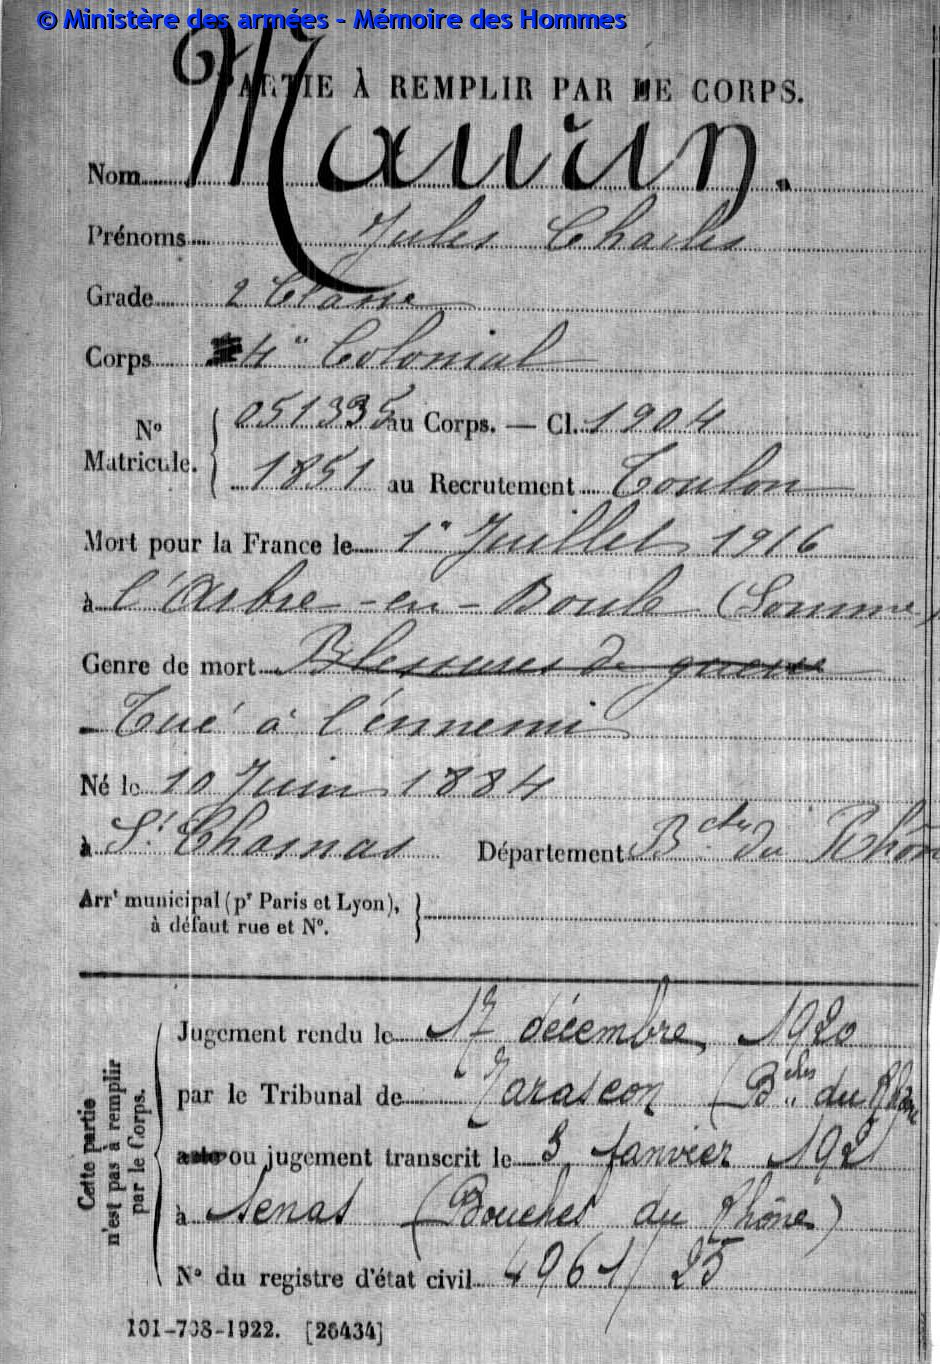 © Ministère des armées - Mémoire des Hommes
PARTIE À REMPLIR PAR LE CORPS.
Nom Maurin.
Prénoms Jules Charles
Grade 2 Classe
Corps 4e Colonial
N° Matricule. { 051335 au Corps. — Cl. 1904
1851 au Recrutement Toulon
Mort pour la France le 1er Juillet 1916
à l'Arbre-en-Boule (Somme)
Genre de mort Blessures de guerre
Tué à l'ennemi
Né le 10 Juin 1884
à St Chamas Département Bches du Rhône
Arrt municipal (pr Paris et Lyon), }
à défaut rue et N°.
Cette partie n'est pas à remplir par le Corps.
Jugement rendu le 17 décembre 1920
par le Tribunal de Tarascon (Bches du Rhône
acte ou jugement transcrit le 3 Janvier 1921
à Sénas (Bouches du Rhône)
N° du registre d'état civil 4961/25
101-708-1922. [26434]